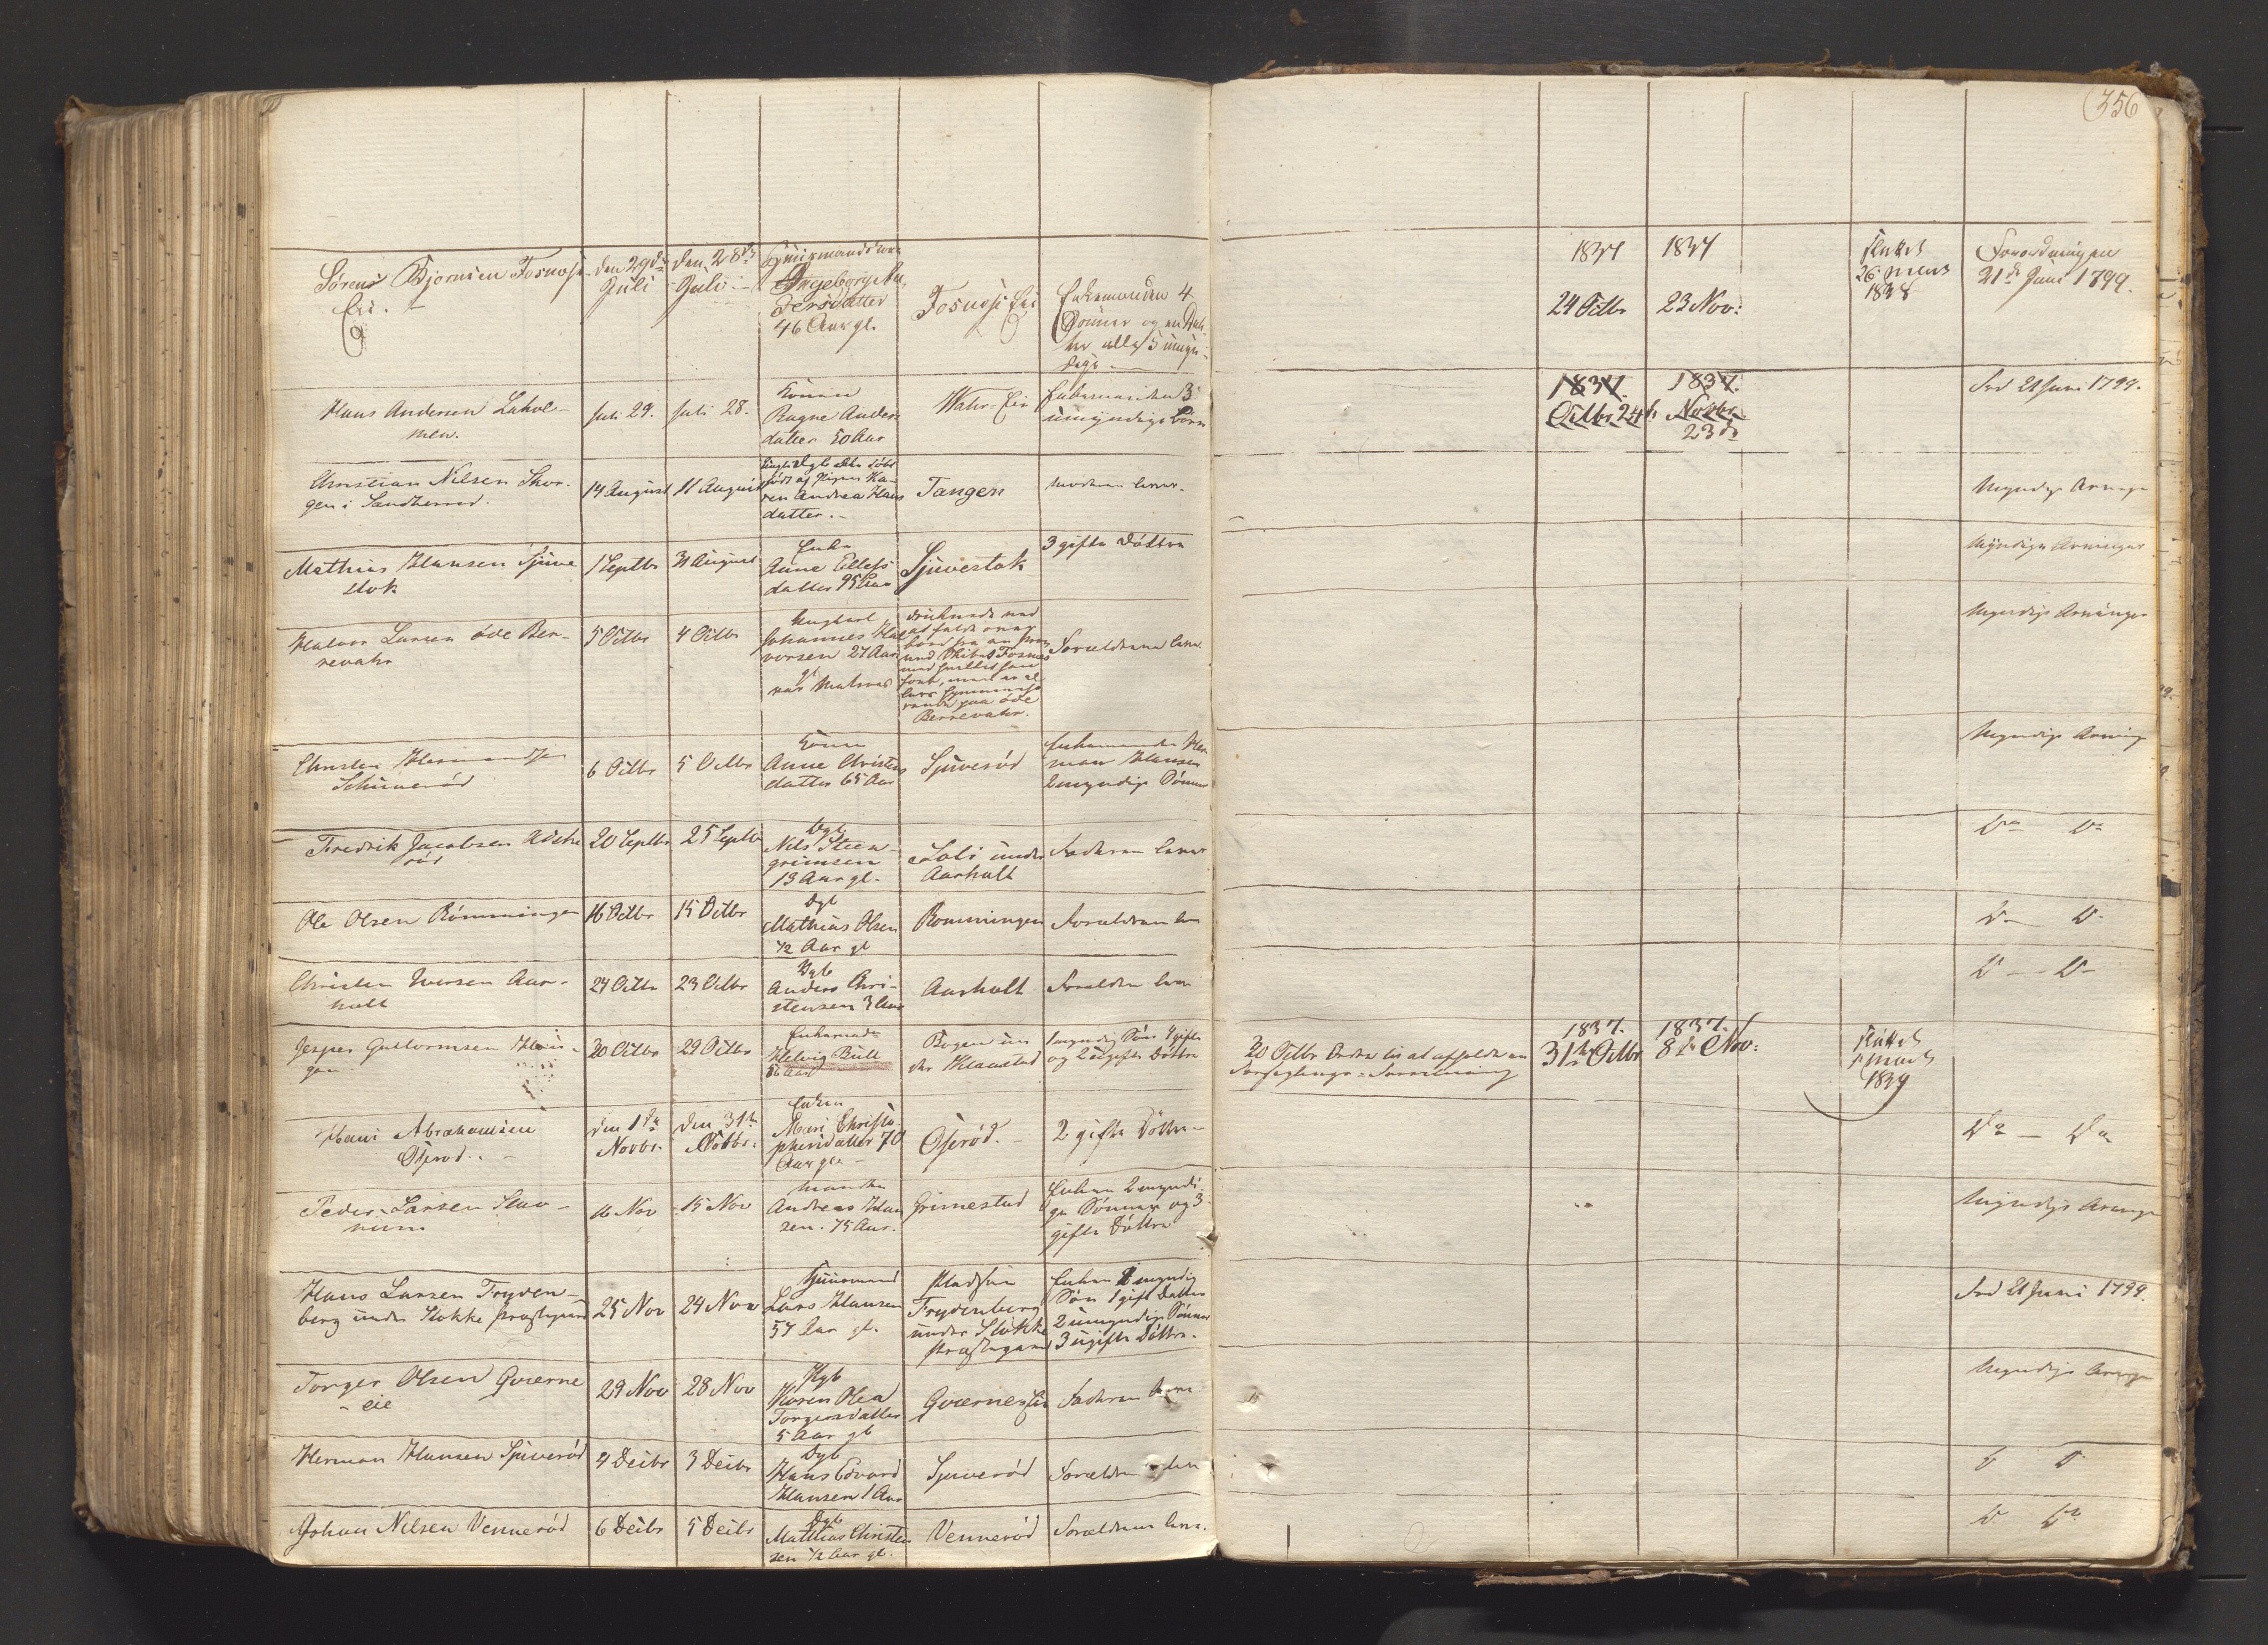 356
Sørens Bjørnsen Fosnæss
Eie.
den 29de
Juli
den 28de
Juli
Ingeborg An-
dersdatter
46 Aar gl.
Fosnæss Eie
Enkemanden 4
Sønner og en Dat-
ter alle 5 umyn-
dige
1837
24 Octbr
1837
23 Nov:
sluttet
26 Marts
1838
Forordningen
21de Juni 1799.
Hans Andersen Lahol-
men.
Juli 29.
Juli 28.
Konen
Ragne Anders
datter 50 Aar
Watv-Eie
Enkemanden 3
umyndige Børn
1837.
Octbr 24de
1837.
Novbr
23de
Frd 21 Juni 1799.
Christian Nilsen Skor-
gen i Sandherred.
14 August
11 August
født af Pigen Ka-
ren Andrea Hans
datter.
Tangen
Moderen lever.
Myndige Arvinger
Mathias Hansen Sjuve
stok
1 Septbr
31 August
Enke
Anne Ellefs
datter 95 Aar
Sjuvestok
3 gifte Døttre
Myndige Arvinger
Halvor Larsen øde Ber-
revahr
5 Octbr
4 Octbr
Ungkarl
Johannes Hal
vorsen 27 Aar
gl
var Matros
druknede ved
at falde over
bord fra
med Skibet Fosnæs
paa øde
Berrevahr.
Forældrene lever.
Myndige Arvinger
Christen Hermandsen
Schiuverød
6 Octbr
5 Octbr
Konen
Anne Christens
datter 65 Aar
Sjuverød
Enkemanden Her-
man Hansen
2 myndige Sønner
Myndige Arving
Fredrik Jacobsen
rød
20 Septbr
25 Septbr
Dgb
Nils Steen-
grimsen
13 Aar gl.
Soli under
Aarholt
Faderen lever
Do Do
Ole Olsen Rømmingen
16 Octbr
15 Octbr
Dgb
Mathias Olsen
1/2 Aar gl
Romminngen
Forældrene lever
Do Do
Christen Iversen Aar-
holt
24 Octbr
23 Octbr
Dgb
Anders Chri-
stensen 3 Aar
Aarholt
Forældre lever
Do Do
Jesper Guttormsen Hau-
gen
30 Octbr
29 Octbr
Enkemadm
Helvig Bull
56 Aar
Bogen un
der Klaastad
1 myndig Søn 4 gifte
og 2 ugifte Døttre
30 Octbr Ordre til at afholde en
Forseglings-Forretning
1837.
31te Octbr
1837.
8de Nov:
sluttet
Marts
1839
Hans Abrahamsen
Oserød.
den 1ste
Novbr.
den 31te
Octbr.
Enken
Mari Christo
phersdatter 70
Aar gl.
Oserød.
2 gifte Døttre
Do — Do
Peder Larsen Hav-
num
16 Nov
15 Nov
Manden
Andreas Han
sen. 75 Aar.
Grimestad
Enken 2 myndi
ge Sønner og 3
gifte Døttre
Myndige Arvinger
Hans Larsen Fryden-
berg under Stokke Præstegaard
25 Nov
24 Nov
Huusmand
Lars Hansen
57 Aar gl.
Pladsen
Frydenberg
under Stokke
Præstegaard
Enken 1 myndig
Søn 1 gift Datter
2 umyndige Sønner
3 ugifte Døttre.
Frd 21 Juni 1799.
Torger Olsen Gvierne
eie
29 Nov
28 Nov
Pgb
Karen Olea
Torgersdatter
5 Aar gl
Gvierneseie
Faderen lever
Myndige Arvinger
Herman Hansen Sjuverød
4 Decbr
3 Decbr
Dgb
Hans Edvard
Hansen 1 Aar
Sjuverød
Forældrene lever
D D
Johan Nilsen Vennerød
6 Decbr
5 Decbr
Dgb
Mathias Christen
sen 1/2 Aar gl.
Vennerød
Forældrene lever.
Do Do